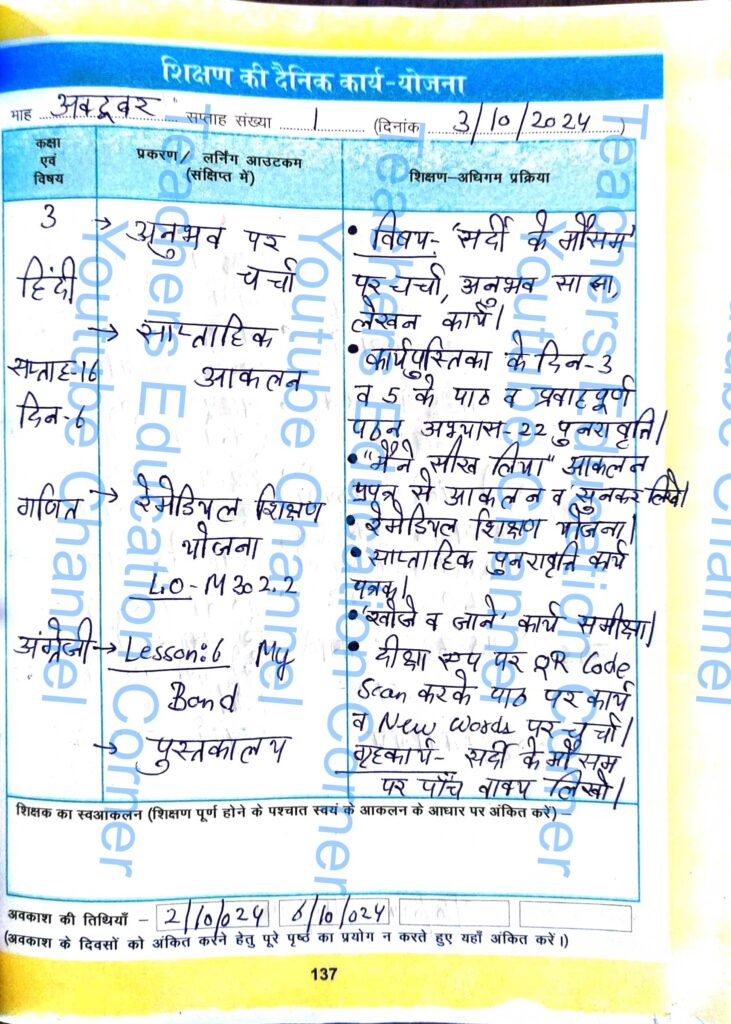 शिक्षण की दैनिक कार्य-योजना
माह अक्टूबर सप्ताह संख्या 1 (दिनांक 3/10/2024)
कक्षा एवं विषय
प्रकरण/ लर्निंग आउटकम (संक्षिप्त में)
शिक्षण-अधिगम प्रक्रिया
3
हिंदी
सप्ताह-16
दिन-6
गणित
अंग्रेजी
→ अनुभव पर
चर्चा
→ साप्ताहिक
आकलन
→ रेमेडियल शिक्षण
योजना
LO-M302.2
→ Lesson:6 My
Band
→ पुस्तकालय
• विषय- 'सर्दी के मौसम'
पर चर्चा, अनुभव साझा,
लेखन कार्य।
• कार्यपुस्तिका के दिन-3
व 5 के पाठ व प्रवाहपूर्ण
पठन अभ्यास-22 पुनरावृत्ति।
• "मैंने सीख लिया" आकलन
प्रपत्र से आकलन व सुनकर लिखें।
• रेमेडियल शिक्षण योजना।
• साप्ताहिक पुनरावृत्ति कार्य
पत्रक।
• 'खोजें व जाने' कार्य समीक्षा।
• दीक्षा एप पर QR Code
Scan करके पाठ पर कार्य
व New Words पर चर्चा।
गृहकार्य- सर्दी के मौसम
पर पाँच वाक्य लिखो।
शिक्षक का स्वआकलन (शिक्षण पूर्ण होने के पश्चात स्वयं के आकलन के आधार पर अंकित करें) –
अवकाश की तिथियाँ – 2/10/024 6/10/024
(अवकाश के दिवसों को अंकित करने हेतु पूरे पृष्ठ का प्रयोग न करते हुए यहाँ अंकित करें।)
137
Teachers Education Corner
Youtube Channel
Teachers Education Corner
Youtube Channel
Teachers Education Corner
Youtube Channel